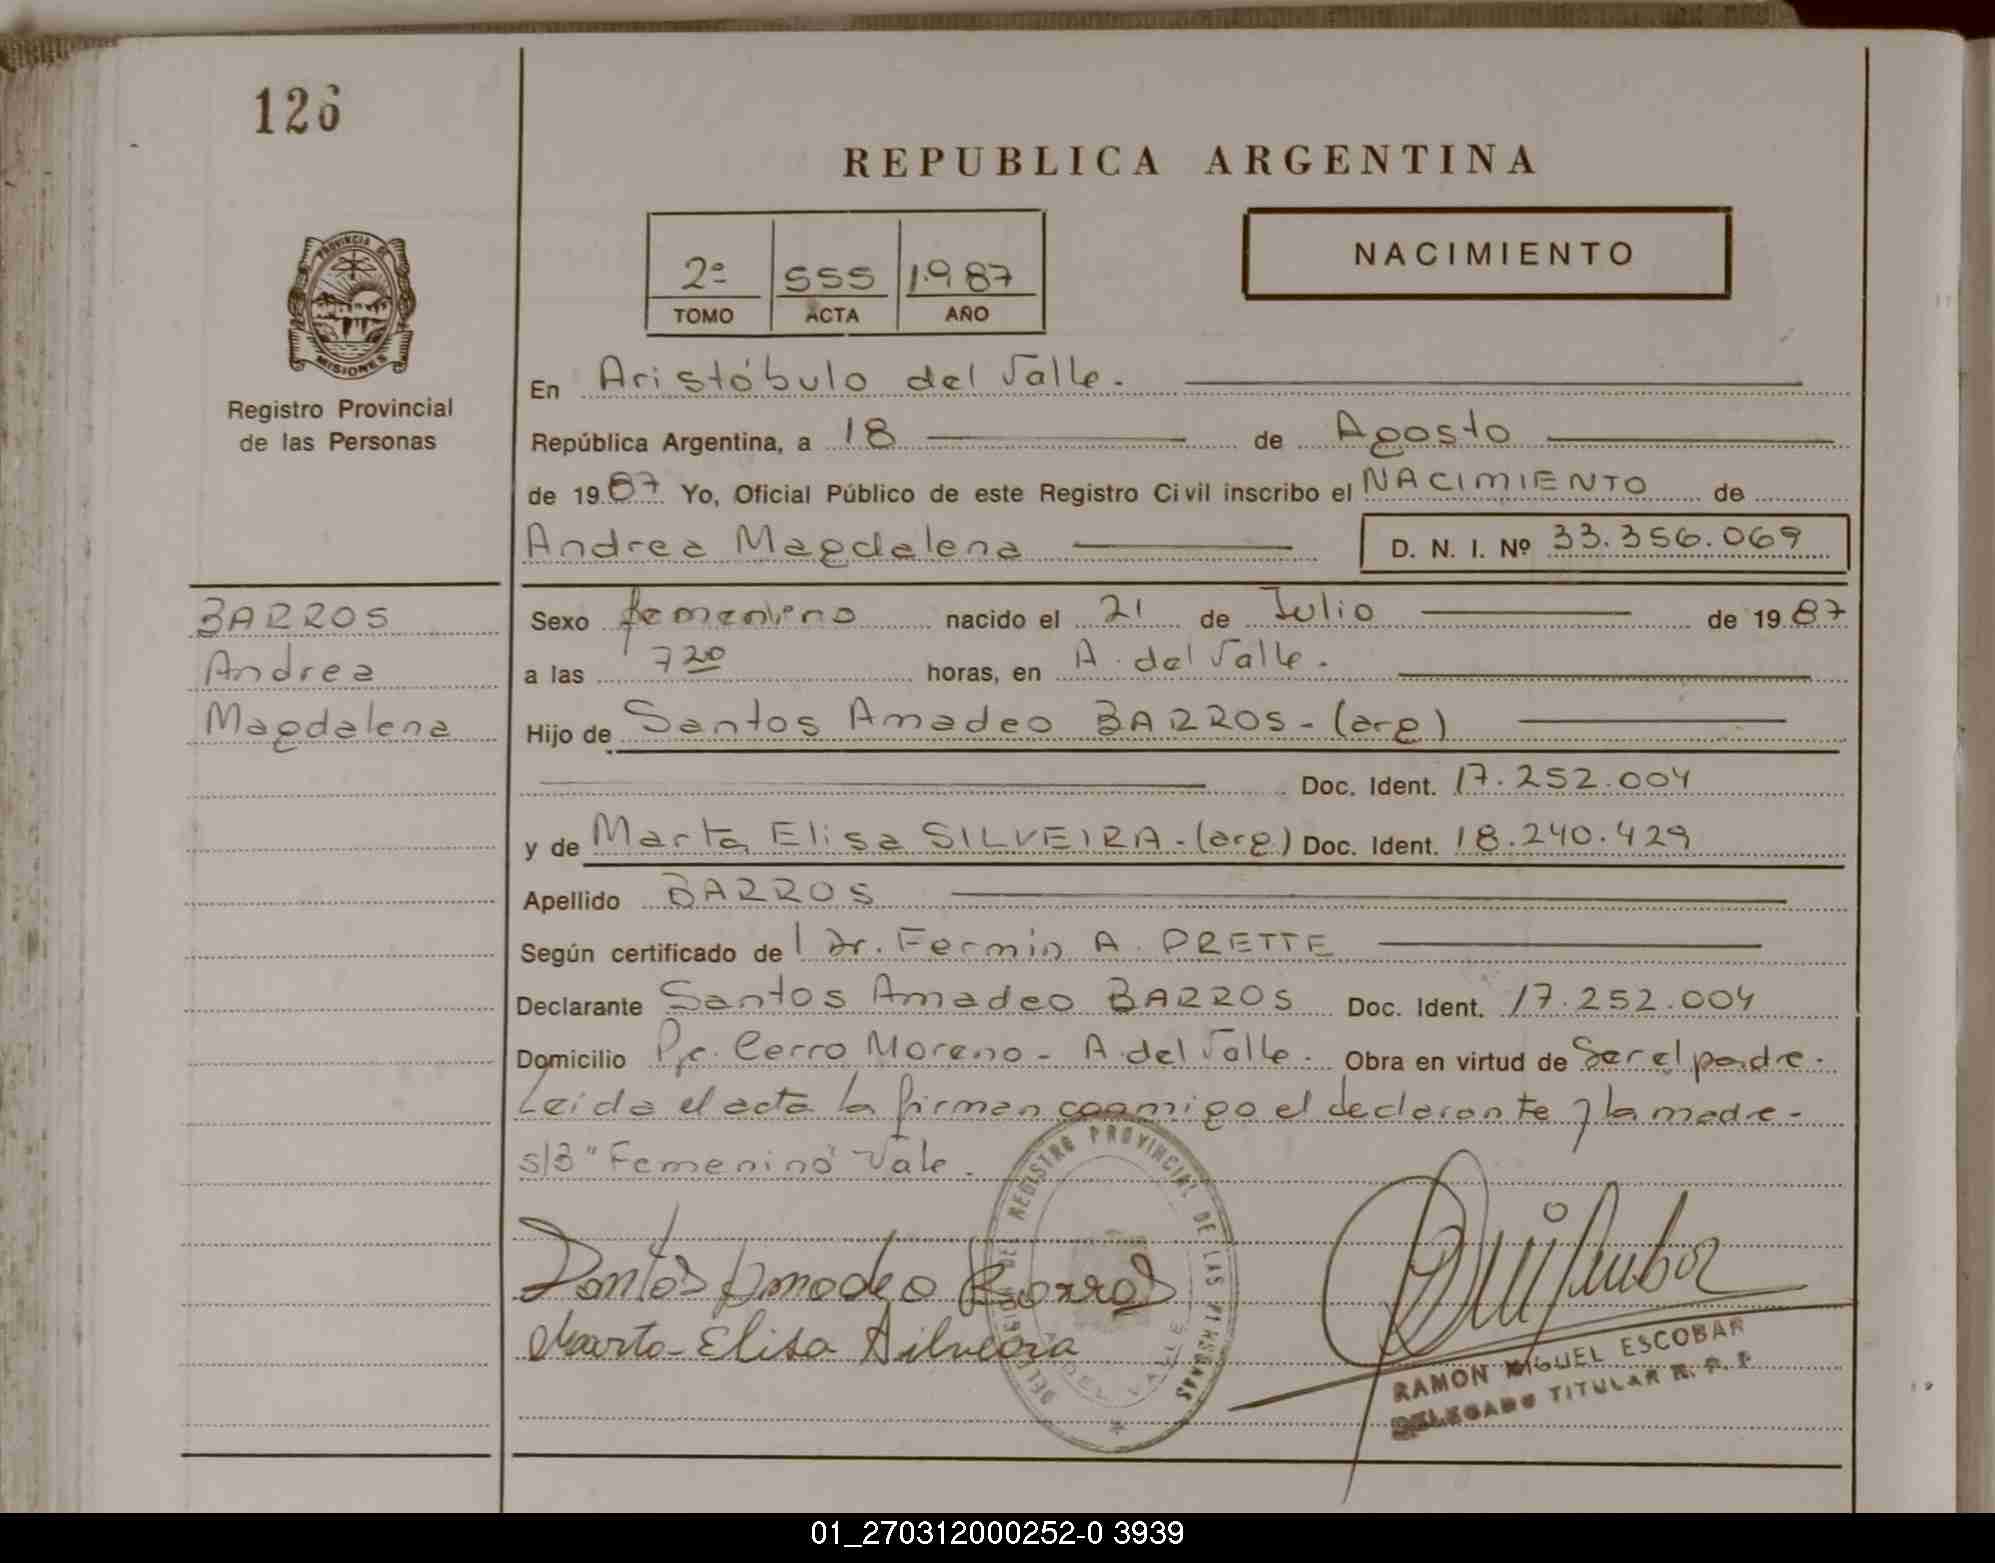 126
REPUBLICA ARGENTINA
PROVINCIA DE
MISIONES
Registro Provincial
de las Personas
2º 555 1.987
TOMO ACTA AÑO
NACIMIENTO
En Aristóbulo del Valle.
República Argentina, a 18 de Agosto
de 1987 Yo, Oficial Público de este Registro Civil inscribo el NACIMIENTO de
Andrea Magdalena D. N. I. Nº 33.356.069
BARROS
Andrea
Magdalena
Sexo femenino nacido el 21 de Julio de 1987
a las 7 20 horas, en A. del Valle.
Hijo de Santos Amadeo BARROS - (arg)
Doc. Ident. 17.252.004
y de Marta Elisa SILVEIRA - (arg) Doc. Ident. 18.240.429
Apellido BARROS
Según certificado de l Dr. Fermin A. PRETTE
Declarante Santos Amadeo BARROS Doc. Ident. 17.252.004
Domicilio Cerro Moreno - A. del Valle. Obra en virtud de Ser el padre.
Leida el acta la firman conmigo el declarante y la madre -
s/B "Femenino" Vale.
Santos Amadeo Barros
Marta Elisa Silveira
REGISTRO PROVINCIAL DE LAS PERSONAS
DEL VALLE
RAMON MIGUEL ESCOBAR
DELEGADO TITULAR R. P. P.
01_270312000252-0 3939